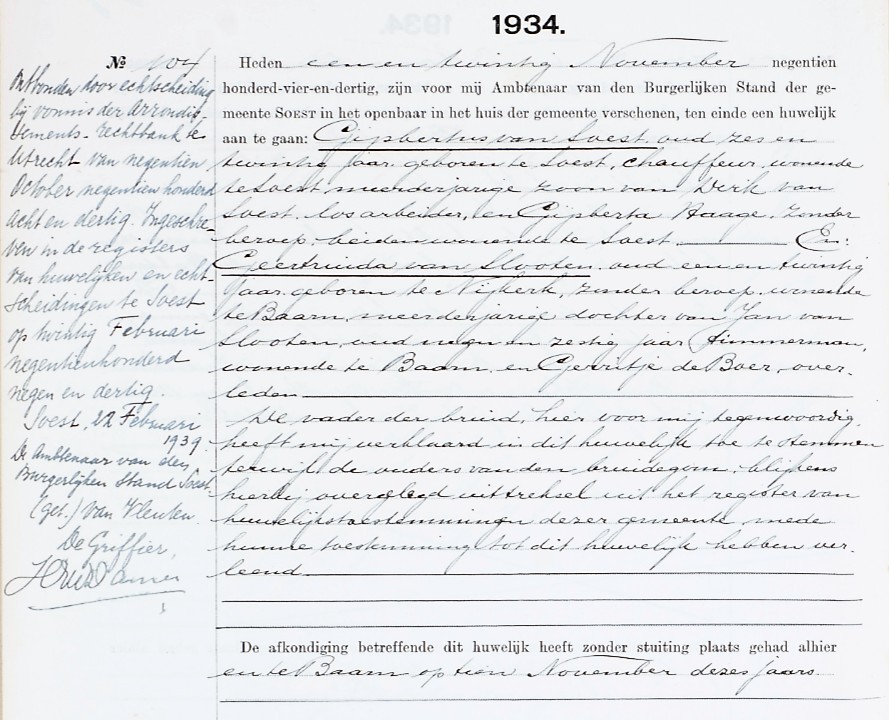 1934.
№ 104
Ontbonden door echtscheiding
bij vonnis der Arrondis-
sements-rechtbank te
Utrecht van negentien
October negentienhonderd
acht en dertig. Ingeschre-
ven in de registers
van huwelijken en echt-
scheidingen te Soest
op twintig Februari
negentienhonderd
negen en dertig.
Soest, 22 Februari
1939.
De Ambtenaar van den
Burgerlijken Stand Soest
(get.) van Vleuten.
De Griffier,
Heden een en twintig November negentien
honderd-vier-en-dertig, zijn voor mij Ambtenaar van den Burgerlijken Stand der ge-
meente Soest in het openbaar in het huis der gemeente verschenen, ten einde een huwelijk
aan te gaan: Gijsbertus van Soest, oud zes en
twintig jaar, geboren te Soest, chauffeur, wonende
te Soest, meerderjarige zoon van Dirk van
Soest, los arbeider, en Gijsberta Haage, zonder
beroep, beiden wonende te Soest. En:
Geertruida van Slooten, oud een en twintig
jaar, geboren te Nijkerk, zonder beroep, wonende
te Baarn, meerderjarige dochter van Jan van
Slooten, oud negen en zestig jaar, timmerman,
wonende te Baarn, en Gerritje de Boer, over-
leden
De vader der bruid, hier voor mij tegenwoordig,
heeft mij verklaard in dit huwelijk toe te stemmen
terwijl de ouders van den bruidegom, blijkens
hierbij overgelegd uittreksel uit het register van
huwelijkstoestemmingen dezer gemeente mede
hunne toestemming tot dit huwelijk hebben ver-
leend.
De afkondiging betreffende dit huwelijk heeft zonder stuiting plaats gehad alhier
en te Baarn op tien November dezes jaars.